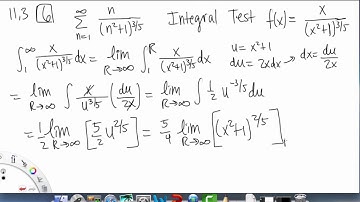 11.3 ⑥ ∑_{n=1}^{∞} n/(n²+1)^{3/5} Integral Test f(x) = x/(x²+1)^{3/5}
∫_1^∞ x/(x²+1)^{3/5} dx = lim_{R→∞} ∫_1^R x/(x²+1)^{3/5} dx u = x²+1 du = 2xdx → dx = du/2x
= lim_{R→∞} ∫ x/u^{3/5} (du/2x) = lim_{R→∞} ∫ 1/2 u^{-3/5} du
= 1/2 lim_{R→∞} [5/2 u^{2/5}] = 5/4 lim_{R→∞} [(x²+1)^{2/5}]_1